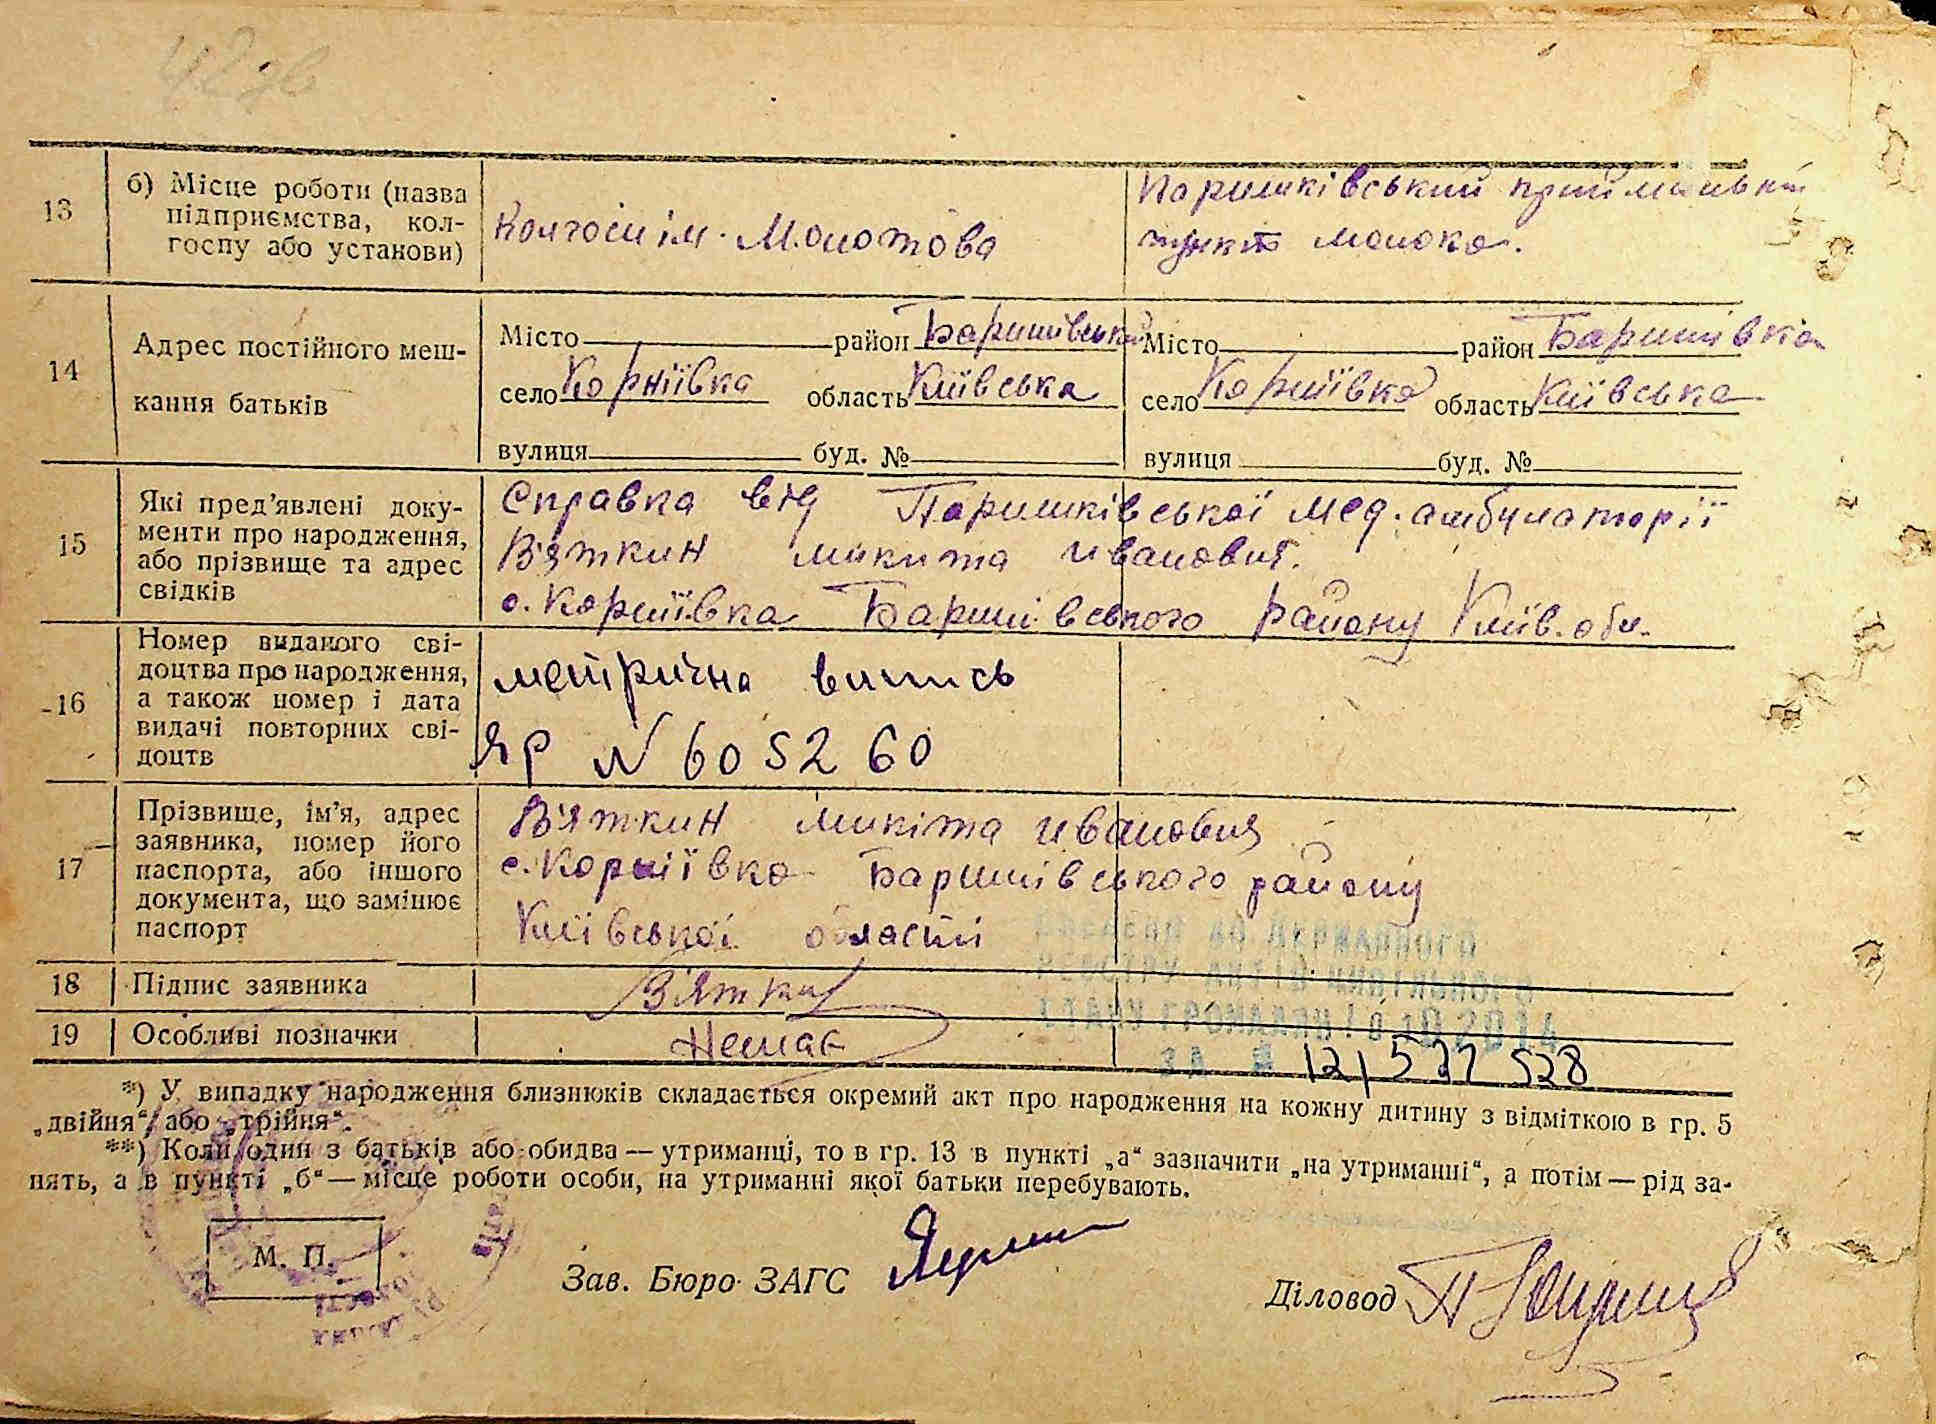 13
б) Місце роботи (назва
підприємства, кол-
госпу або установи)
Колгосп ім. Молотова
Паришківський приймальний
пункт молока.
14
Адрес постійного меш-
кання батьків
Місто район Баришівський
село Корніївка область Київська
вулиця буд. №
Місто район Баришівка
село Корніївка область Київська
вулиця буд. №
15
Які пред’явлені доку-
менти про народження,
або прізвище та адрес
свідків
Справка від Паришківської мед. амбулаторії
В'яткин микита иванович.
с. Корніївка Баришівського району Київ. обл.
16
Номер виданого сві-
доцтва про народження,
а також номер і дата
видачі повторних сві-
доцтв
метрична випись
ЯР N 605260
17
Прізвище, ім’я, адрес
заявника, номер його
паспорта, або іншого
документа, що замінює
паспорт
В'яткин микіта ивановия
с. Корніївка Баришівського району
Київської області
18
Підпис заявника
В'ятки
19
Особливі позначки
Немає
528
*) У випадку народження близнюків складається окремий акт про народження на кожну дитину з відміткою в гр. 5
„двійня“ або „трійня“.
**) Коли один з батьків або обидва — утриманці, то в гр. 13 в пункті „а“ зазначити „на утриманні“, а потім — рід за-
нять, а в пункті „б“ — місце роботи особи, на утриманні якої батьки перебувають.
М. П.
Зав. Бюро ЗАГС
Діловод